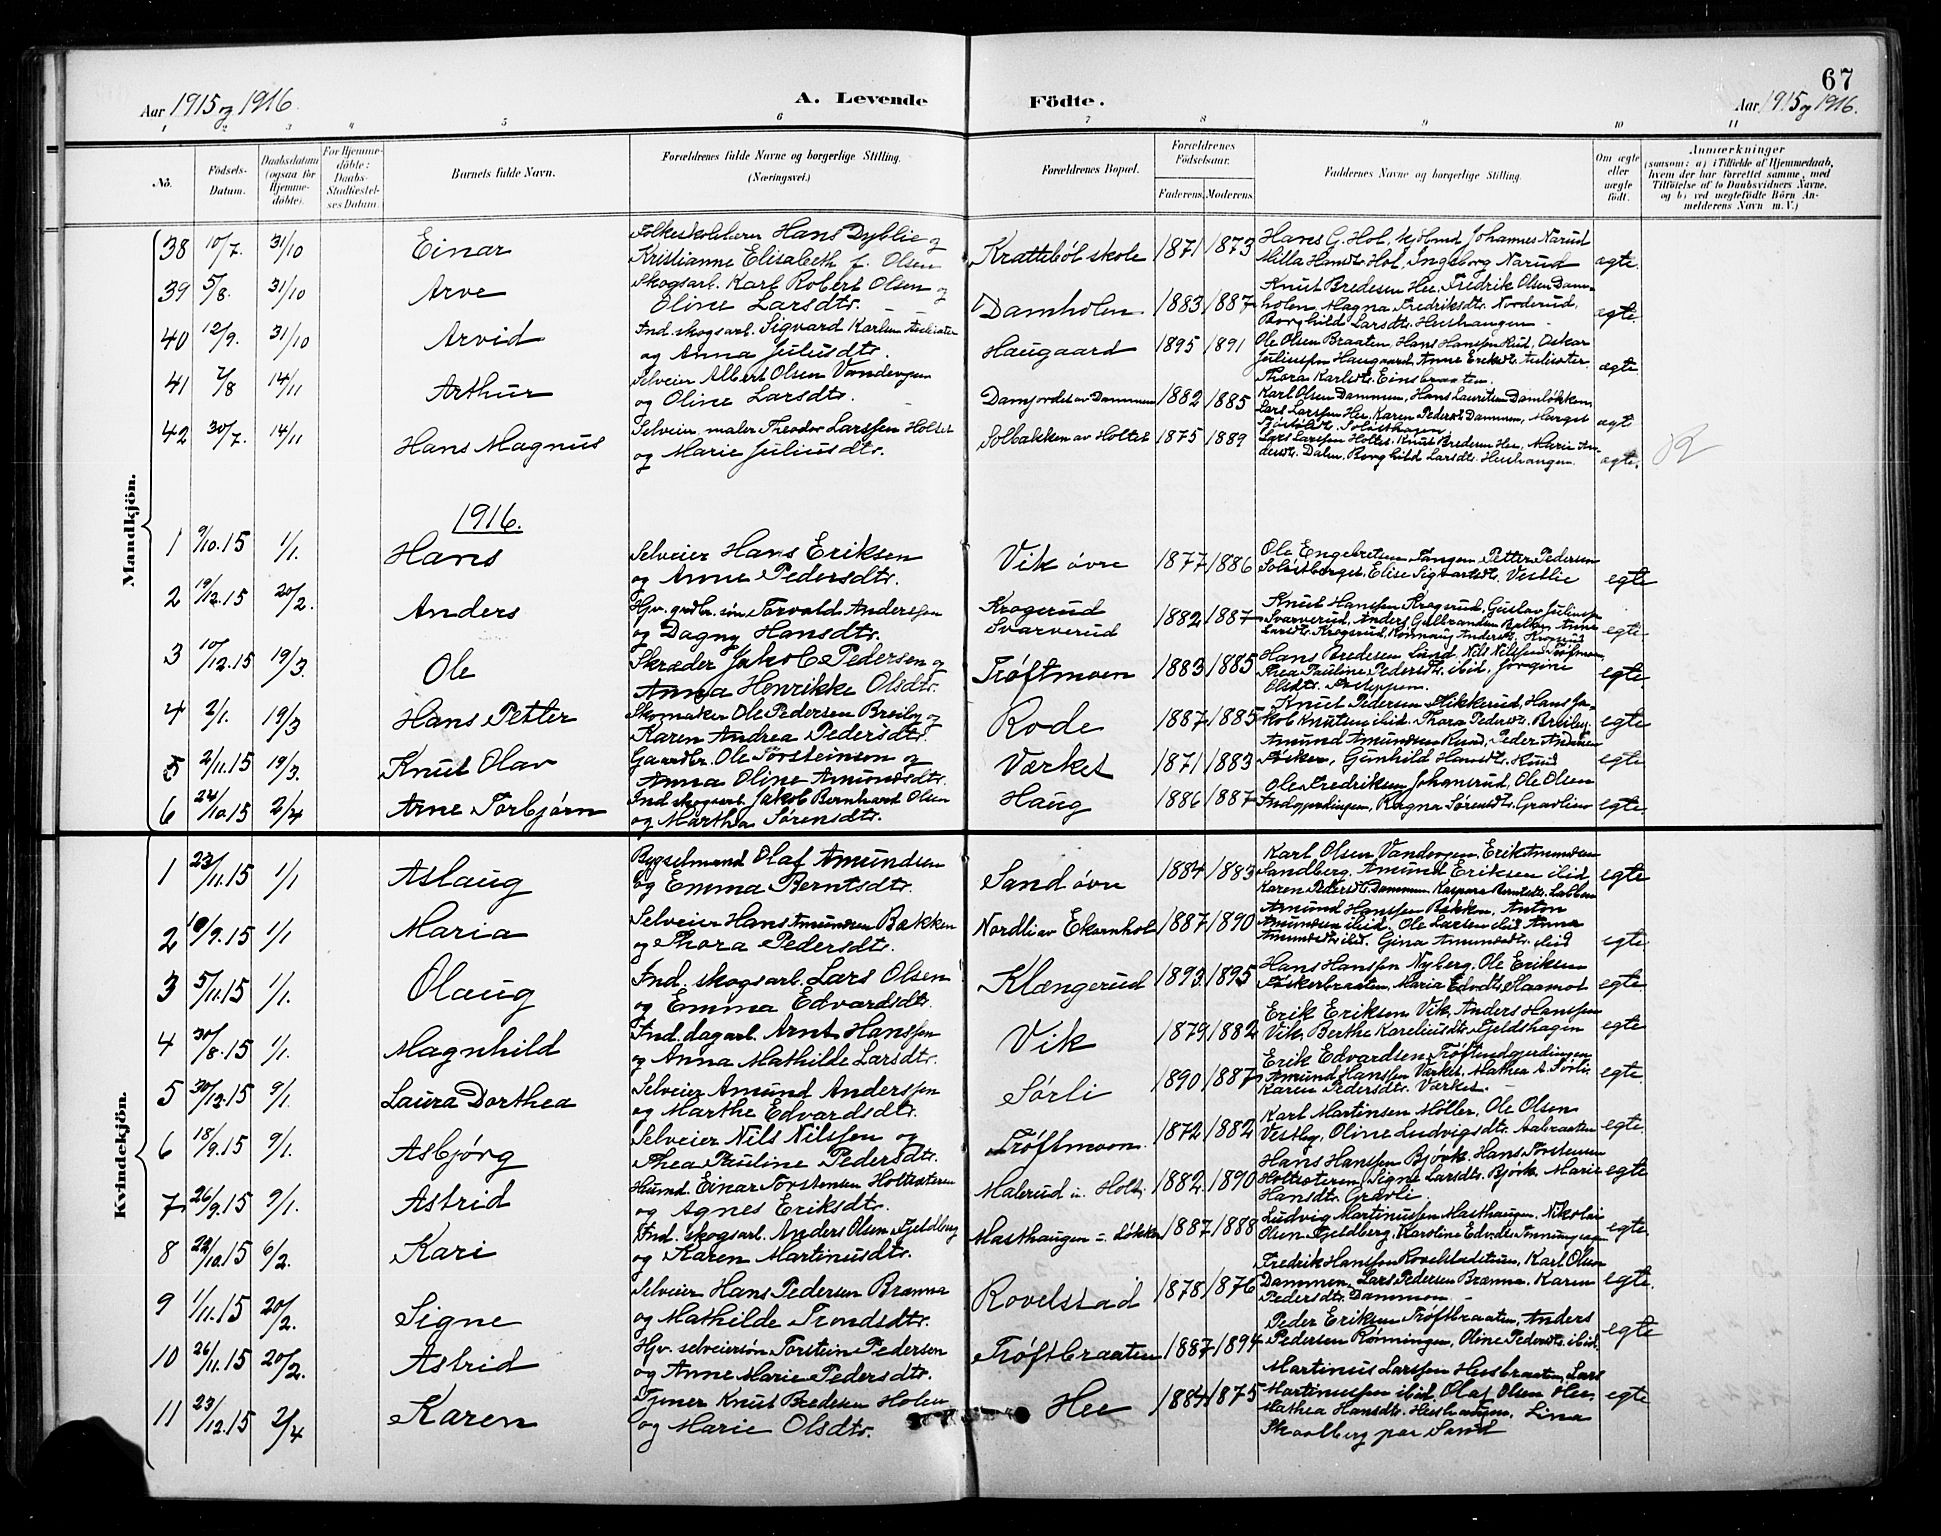 67
Aar 1915 og 1916.
A. Levende Födte.
Aar 1915 og 1916.
1 2 3 4 5 6 7 8 9 10 11
No.
Födsels-Datum.
Daabsdatum (ogsaa for Hjemme-döbte).
For Hjemme-döbte: Daabs-Stadfæstel-ses Datum.
Barnets fulde Navn.
Forældrenes fulde Navne og borgerlige Stilling. (Næringsvei.)
Forældrenes Bopæl.
Forældrenes Födselsaar.
Faderens. Moderens.
Faddernes Navne og borgerlige Stilling.
Om ægte eller uægte født.
Anmærkninger
(saasom: a) i Tilfælde af Hjemmedaab, hvem der har forrettet samme, med Tilföielse af to Daabsvidners Navne, og b) ved uægtefödte Börn An-melderens Navn m. V.)
Mandkjön.
38 10/7. 31/10 Einar
Folkeskolelærer Hans Dyblie og
Kristianne Elisabeth f. Olsen
Krattebøl skole 1871 1873
Hans G. Hol, kjøbmd Johannes Narud
Milla Hansdtr Hol, Ingeborg Narud
ægte.
39 5/8. 31/10 Arve
Skogsarb. Karl Robert Olsen og
Oline Larsdtr.
Damholen 1883 1887
Knut Bredesen Hee, Fredrik Olsen Dam-
holen, Magna Fredriksdtr. Norderud,
Borghild Larsdtr. Heehaugen
ægte.
40 12/9. 31/10 Arvid
Ind. skogsarb. Sigvard Karlsen
og Anna Juliusdtr.
Haugaard 1895 1891
Ole Olsen Braaten, Hans Hanssen Rud, Oskar
Juliussen Haugaard, Anne Eriksdtr.
Thora Karlsdtr. Einsbraaten.
ægte
41 7/8 14/11 Arthur
Selveier Albert Olsen Vandvogen
og Oline Larsdtr.
Damjordet av Dammen 1882 1885
Karl Olsen Dammen, Hans Lauritsen Damløkken,
Lars Larssen Hee, Karen Pedersdt Dammen, Margit
ægt
42 30/7. 14/11 Hans Magnus
Selveier, maler Theodor Larssen Holtet
og Marie Juliusdtr.
Solbakken av Holtet 1875 1889
Lars Larssen Holtet, Knut Bredesen Hee, Marie An-
dersdtr. Dalen, Borghild Larsdtr. Heehaugen.
ægte.
R
1916.
1 9/10.15 1/1. Hans
Selveier Hans Eriksen
og Anne Pedersdtr.
Vik øvre 1877 1886
Ole Engebretsen Tangen, Petter Pedersen
Elise Sigvartsdt. Vestlie
egte
2 19/12.15 20/2. Anders
Hjv. grdbr. søn Torvald Anderssen
og Dagny Hansdtr.
Krogsrud
Svarverud 1882 1887
Knut Hanssen Krogsrud, Gustav Juliussen
Svarverud, Anders Gulbrandsen Bølken, Anna
Larsdt. Krogsrud, Rønnaug Andersdt. Krogsrud
egte
3 10/12.15 19/3. Ole
Skræder Jakob Pedersen og
Anna Henrikke Olsdtr.
Trøftmoen 1883 1885
Hans Bredesen Lund, Nils Nilssen Trøftmoen,
Thea Pauline Pedersdtr. ibid, Jørgine
Olsdtr.
egte.
4 2/1. 19/3 Hans Petter
Skomaker Ole Pedersen Breiby og
Karen Andrea Pedersdtr.
Rode 1887 1885
Knut Pedersen Slikkerud, Hans Ja-
kob Knutsen ibid, Thora Pedersdt. Breiby.
egte
5 2/11.15 19/3. Knut Olav
Gaardbr. Ole Torsteinsen og
Anna Oline Amundsdtr.
Værket 1871 1883
Amund Amundsen Ruud, Peder Andersen
Fisker, Gunhild Hansdt. Ruud
egte
6 24/10.15 2/4 Arne Torbjørn
Ind. skogsarb. Jakob Bernhard Olsen
og Martha Sørensdtr.
Haug 1886 1887
Ole Fredriksen Johansrud, Ole Olsen
Indgjerdingen, Ragna Sørensdt. Gravlien
egte.
Kvindekjön.
1 23/11.15 1/1 Aslaug
Bygselmand Olaf Amundsen
og Emma Berntsdtr.
Sand øvre 1884 1883
Karl Olsen Vandvogen, Erik Amundsen
Sandberg, Amund Eriksen ibid,
Karen Pedersdt. Dammen, Kaspara Berntsdt.
egte
2 19/9.15 1/1 Maria
Selveier Hans Amundsen Bakken
og Thora Pedersdtr.
Nordli av Ekornhol 1887 1890
Amund Hanssen Bakken, Anton
Amundsen ibid, Ole Larsen ibid, Anna
Amundsdt ibid, Gina Amundsdt. ibid
egte
3 5/11.15 1/1. Olaug
Ind. skogsarb. Lars Olsen
og Emma Edvardsdtr.
Klængerud 1893 1895
Hans Hanssen Nyberg, Ole Eriksen
Fiskerbraaten, Maria Edvdt. Slaamot
egte
4 30/8.15 1/1. Magnhild
Ind. dagarb. Arnt Hanssen
og Anna Mathilde Larsdtr.
Vik 1879 1882
Erik Eriksen Vik, Anders Hanssen
Vik, Berthe Kareliusdtr. Fjeldshagen
egte
5 30/12.15 9/1. Laura Dorthea
Selveier Amund Anderssen
og Marthe Edvardsdtr.
Sørli 1890 1887
Erik Edvardsen Trøftindgjerdingen
Amund Hanssen Værket, Mathea A. Sørli,
Karen Pedersdtr. Værket.
egte.
6 18/9.15 9/1. Asbjørg
Selveier Nils Nilssen og
Thea Pauline Pedersdtr.
Trøftmoen. 1872 1882
Karl Martinsen Møller, Ole Olsen
Vestby, Oline Ludvigsdtr. Aabraaten
egte.
7 26/9.15 9/1. Astrid
Husmd. Einar Torstensen Holtsæteren
og Agnes Eriksdtr.
Malerud u. Holt. 1882 1890
Hans Hanssen Bjørk, Hans Torstensen
Holtsæteren, Signe Larsdtr. Bjørk, Marie
Hansdtr. Gravli.
egte
8 22/10.15 6/2. Kari
Ind. skogsarb. Anders Olsen Fjeldberg
og Karen Martinusdtr.
Masthaugen u. Løkken 1887 1888
Ludvig Martinussen Masthaugen, Nikolai
Olsen Fjeldberg, Karoline Edvdt.
egte.
9 1/11.15 20/2. Signe
Selveier Hans Pedersen Brænna
og Mathilde Trondsdtr.
Rovelstad 1878 1876
Fredrik Hanssen Rovelstadeien, Karl Olsen
Dammen, Lars Pedersen Brænna, Karen
Pedersdtr. Dammen
egte.
10 26/11.15 20/2. Astrid
Hjv. selveiersøn Torstein Pedersen
og Anne Marie Pedersdtr.
Trøftbraaten 1887 1894
Peder Eriksen Trøftbraaten, Anders
Pedersen Rønningen, Oline Pedersdt. ibid.
egte
11 23/12.15 2/4 Karen
Tjener Knut Bredesen Holen
og Marie Olsdtr.
Hee 1884 1875
Martinus Larssen Heebraaten, Lars
Martinussen ibid, Olaf Olsen Hee,
Mathea Hansdtr. Heehaugen, Lina
Skaalberg paa Sand
egte